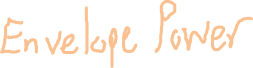 Envelope Power